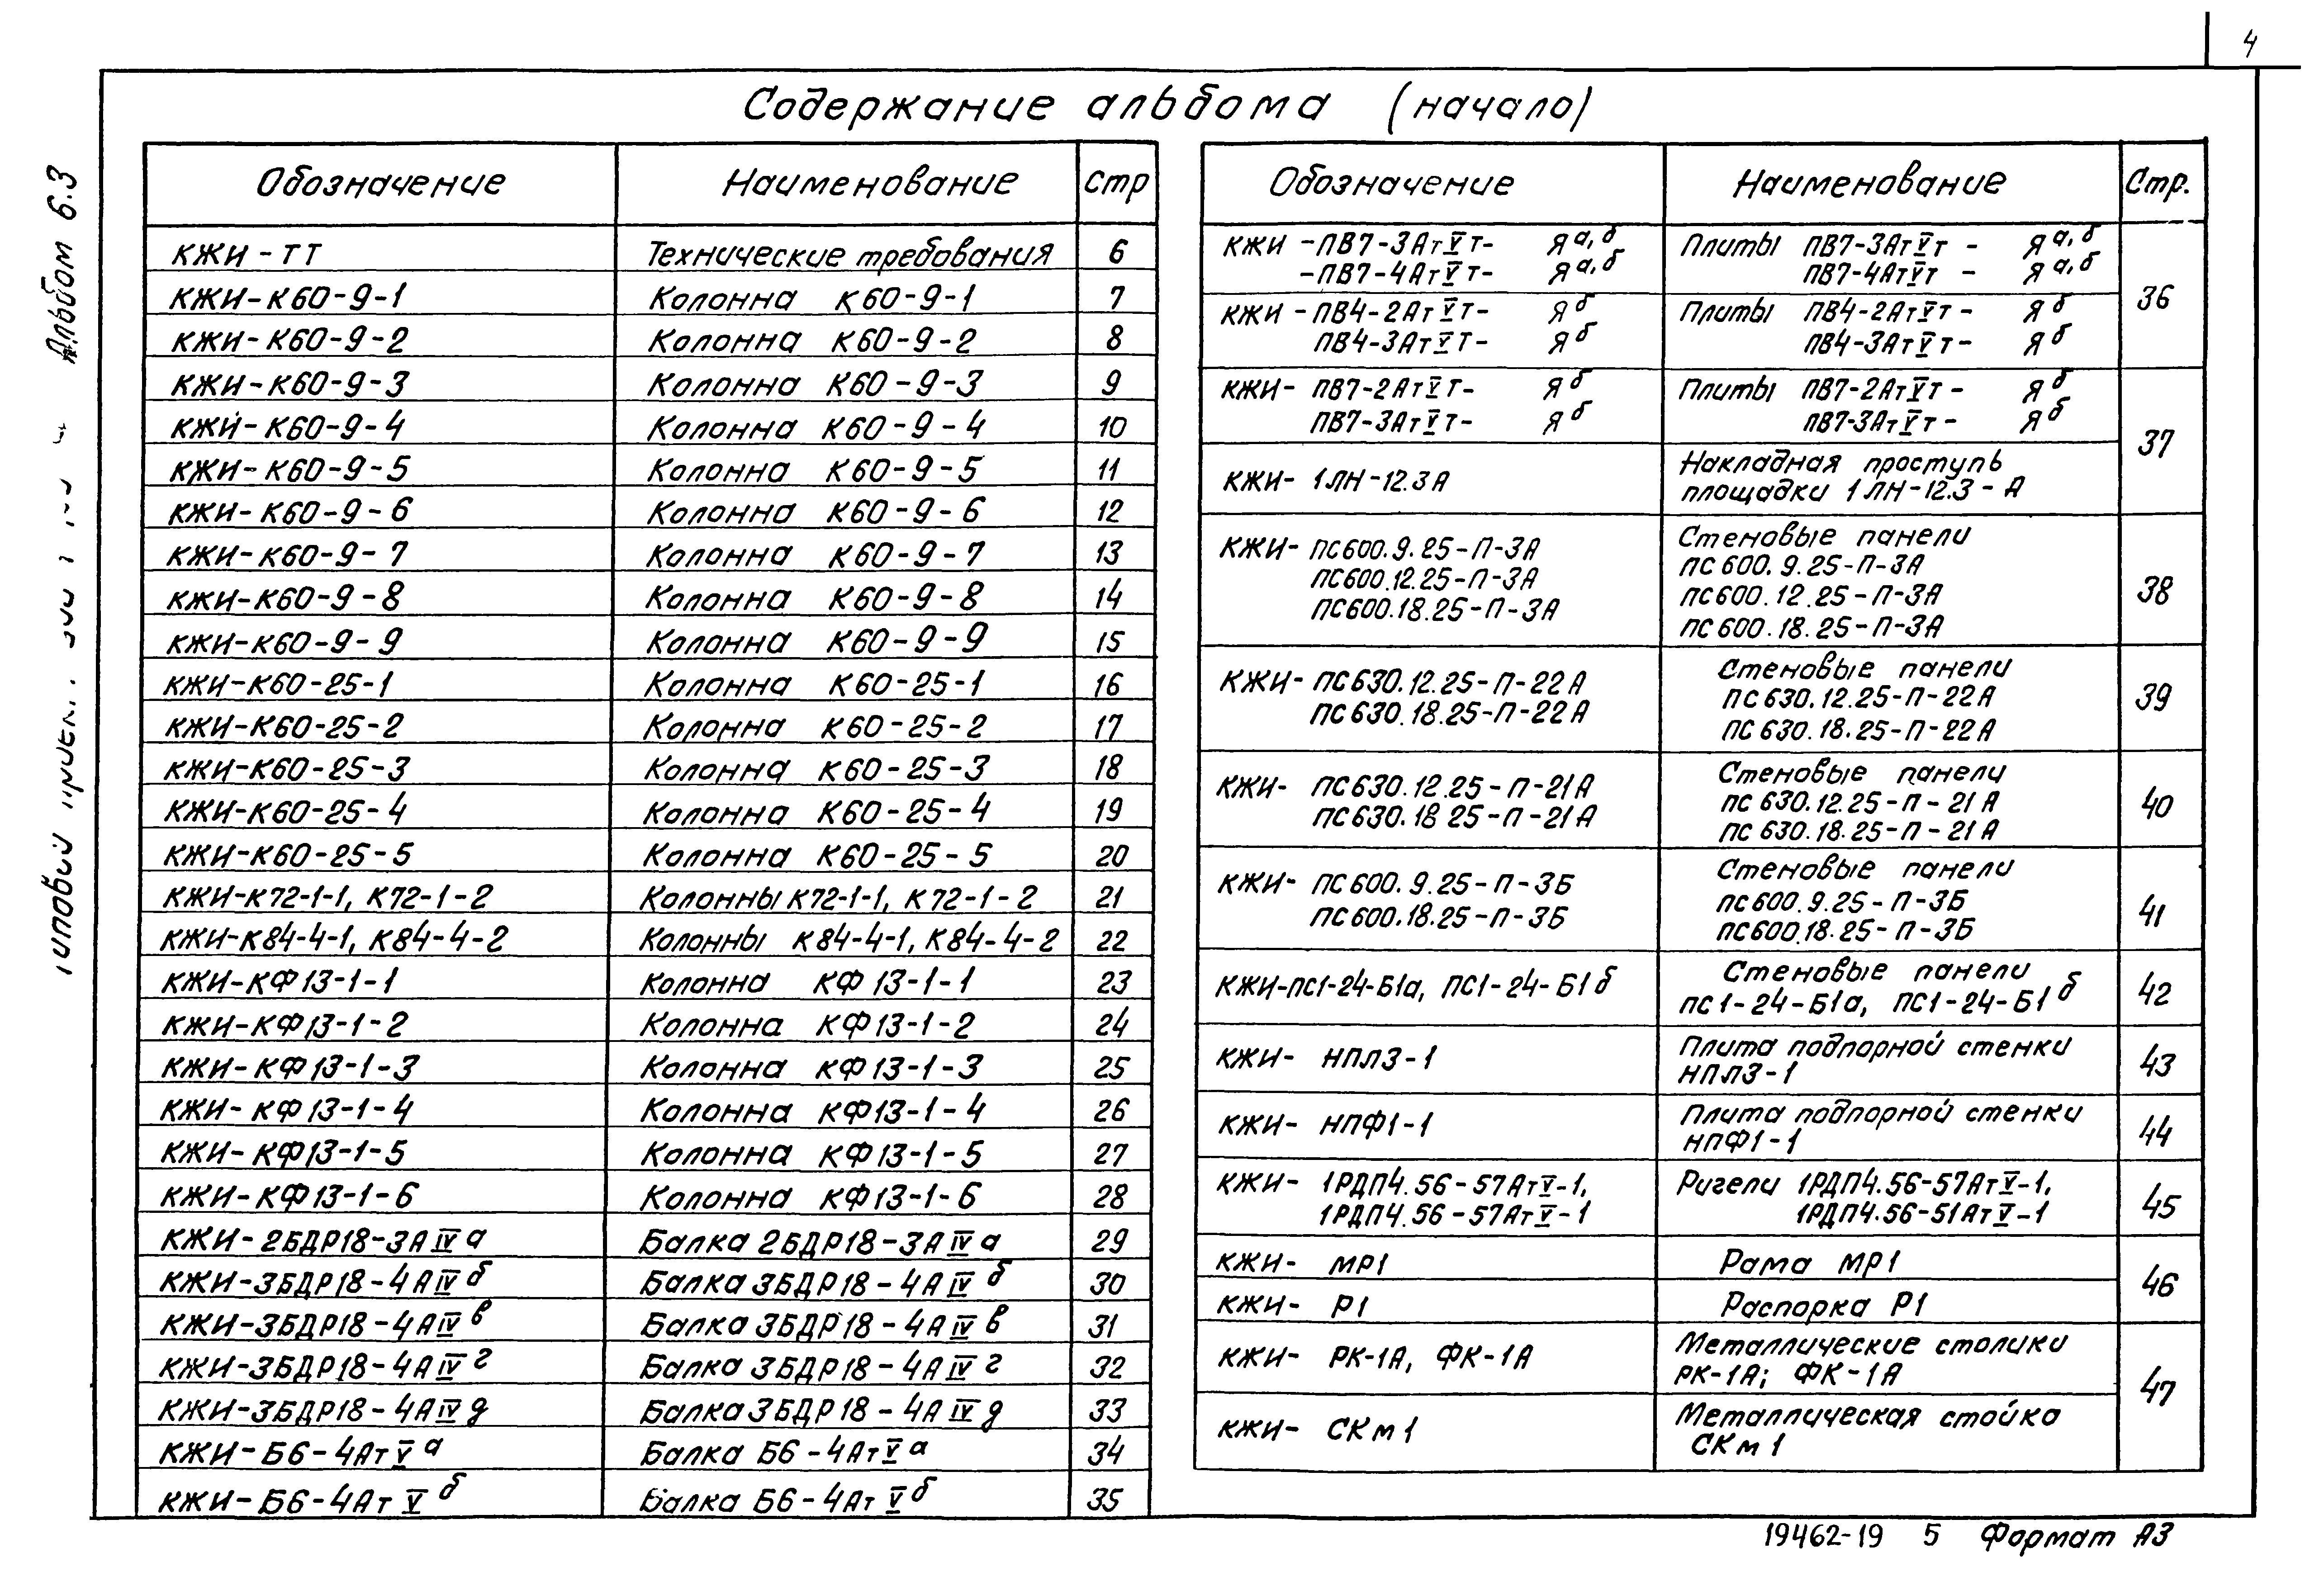 4
Содержание альбома (начало)
Альбом 6.3
Обозначение Наименование Стр
КЖИ-ТТ Технические требования 6
КЖИ-К60-9-1 Колонна К60-9-1 7
КЖИ-К60-9-2 Колонна К60-9-2 8
КЖИ-К60-9-3 Колонна К60-9-3 9
КЖИ-К60-9-4 Колонна К60-9-4 10
КЖИ-К60-9-5 Колонна К60-9-5 11
КЖИ-К60-9-6 Колонна К60-9-6 12
КЖИ-К60-9-7 Колонна К60-9-7 13
КЖИ-К60-9-8 Колонна К60-9-8 14
КЖИ-К60-9-9 Колонна К60-9-9 15
КЖИ-К60-25-1 Колонна К60-25-1 16
КЖИ-К60-25-2 Колонна К60-25-2 17
КЖИ-К60-25-3 Колонна К60-25-3 18
КЖИ-К60-25-4 Колонна К60-25-4 19
КЖИ-К60-25-5 Колонна К60-25-5 20
КЖИ-К72-1-1, К72-1-2 Колонны К72-1-1, К72-1-2 21
КЖИ-К84-4-1, К84-4-2 Колонны К84-4-1, К84-4-2 22
КЖИ-КФ13-1-1 Колонна КФ13-1-1 23
КЖИ-КФ13-1-2 Колонна КФ13-1-2 24
КЖИ-КФ13-1-3 Колонна КФ13-1-3 25
КЖИ-КФ13-1-4 Колонна КФ13-1-4 26
КЖИ-КФ13-1-5 Колонна КФ13-1-5 27
КЖИ-КФ13-1-6 Колонна КФ13-1-6 28
КЖИ-2БДР18-3АIVа Балка 2БДР18-3АIVа 29
КЖИ-3БДР18-4АIVб Балка 3БДР18-4АIVб 30
КЖИ-3БДР18-4АIVв Балка 3БДР18-4АIVв 31
КЖИ-3БДР18-4АIVг Балка 3БДР18-4АIVг 32
КЖИ-3БДР18-4АIVд Балка 3БДР18-4АIVд 33
КЖИ-Б6-4АтVа Балка Б6-4АтVа 34
КЖИ-Б6-4АтVб Балка Б6-4АтVб 35
Обозначение Наименование Стр.
КЖИ -ПВ7-3АтVт- Яа,б Плиты ПВ7-3АтVт - Яа,б 36
-ПВ7-4АтVт- Яа,б ПВ7-4АтVт - Яа,б
КЖИ -ПВ4-2АтVт- Яб Плиты ПВ4-2АтVт - Яб
ПВ4-3АтVт- Яб ПВ4-3АтVт - Яб
КЖИ- ПВ7-2АтVт- Яб Плиты ПВ7-2АтVт - Яб 37
ПВ7-3АтVт- Яб ПВ7-3АтVт - Яб
КЖИ- 1ЛН-12.3А Накладная проступь
площадки 1ЛН-12.3-А
КЖИ- ПС600.9.25-П-3А Стеновые панели 38
ПС600.12.25-П-3А ПС600.9.25-П-3А
ПС600.18.25-П-3А ПС600.12.25-П-3А
ПС600.18.25-П-3А
КЖИ- ПС630.12.25-П-22А Стеновые панели 39
ПС630.18.25-П-22А ПС630.12.25-П-22А
ПС630.18.25-П-22А
КЖИ- ПС630.12.25-П-21А Стеновые панели 40
ПС630.18 25-П-21А ПС630.12.25-П-21А
ПС630.18.25-П-21А
КЖИ- ПС600.9.25-П-3Б Стеновые панели 41
ПС600.18.25-П-3Б ПС600.9.25-П-3Б
ПС600.18.25-П-3Б
КЖИ-ПС1-24-Б1а, ПС1-24-Б1б Стеновые панели 42
ПС1-24-Б1а, ПС1-24-Б1б
КЖИ- НПЛ3-1 Плита подпорной стенки 43
НПЛ3-1
КЖИ- НПФ1-1 Плита подпорной стенки 44
НПФ1-1
КЖИ- 1РДП4.56-57АтV-1, Ригели 1РДП4.56-57АтV-1, 45
1РДП4.56-57АтV-1 1РДП4.56-51АтV-1
КЖИ- МР1 Рама МР1 46
КЖИ- Р1 Распорка Р1
КЖИ- РК-1А, ФК-1А Металлические столики 47
РК-1А; ФК-1А
КЖИ- СКм1 Металлическая стойка
СКм1
19462-19 5 Формат А3